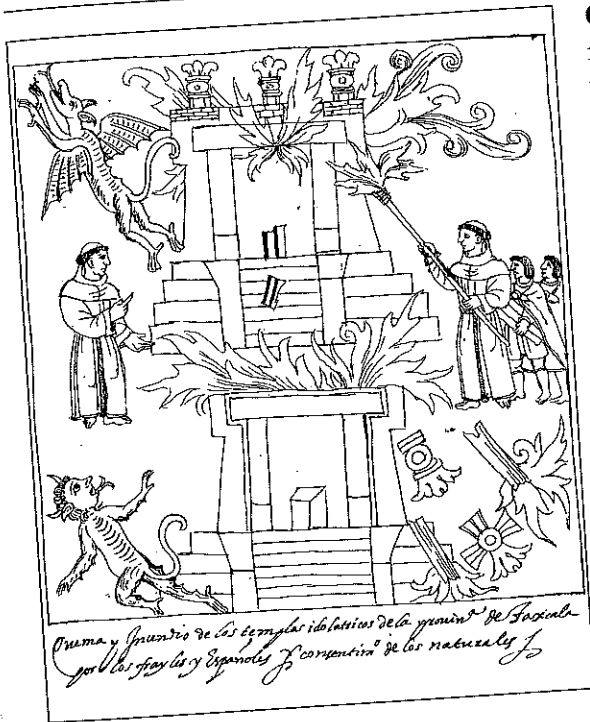 Quema y Incendio de los templos idolatricos de la provinᵃ de Taxcala
por los frayles y Españoles y consentimᵒ de los naturales